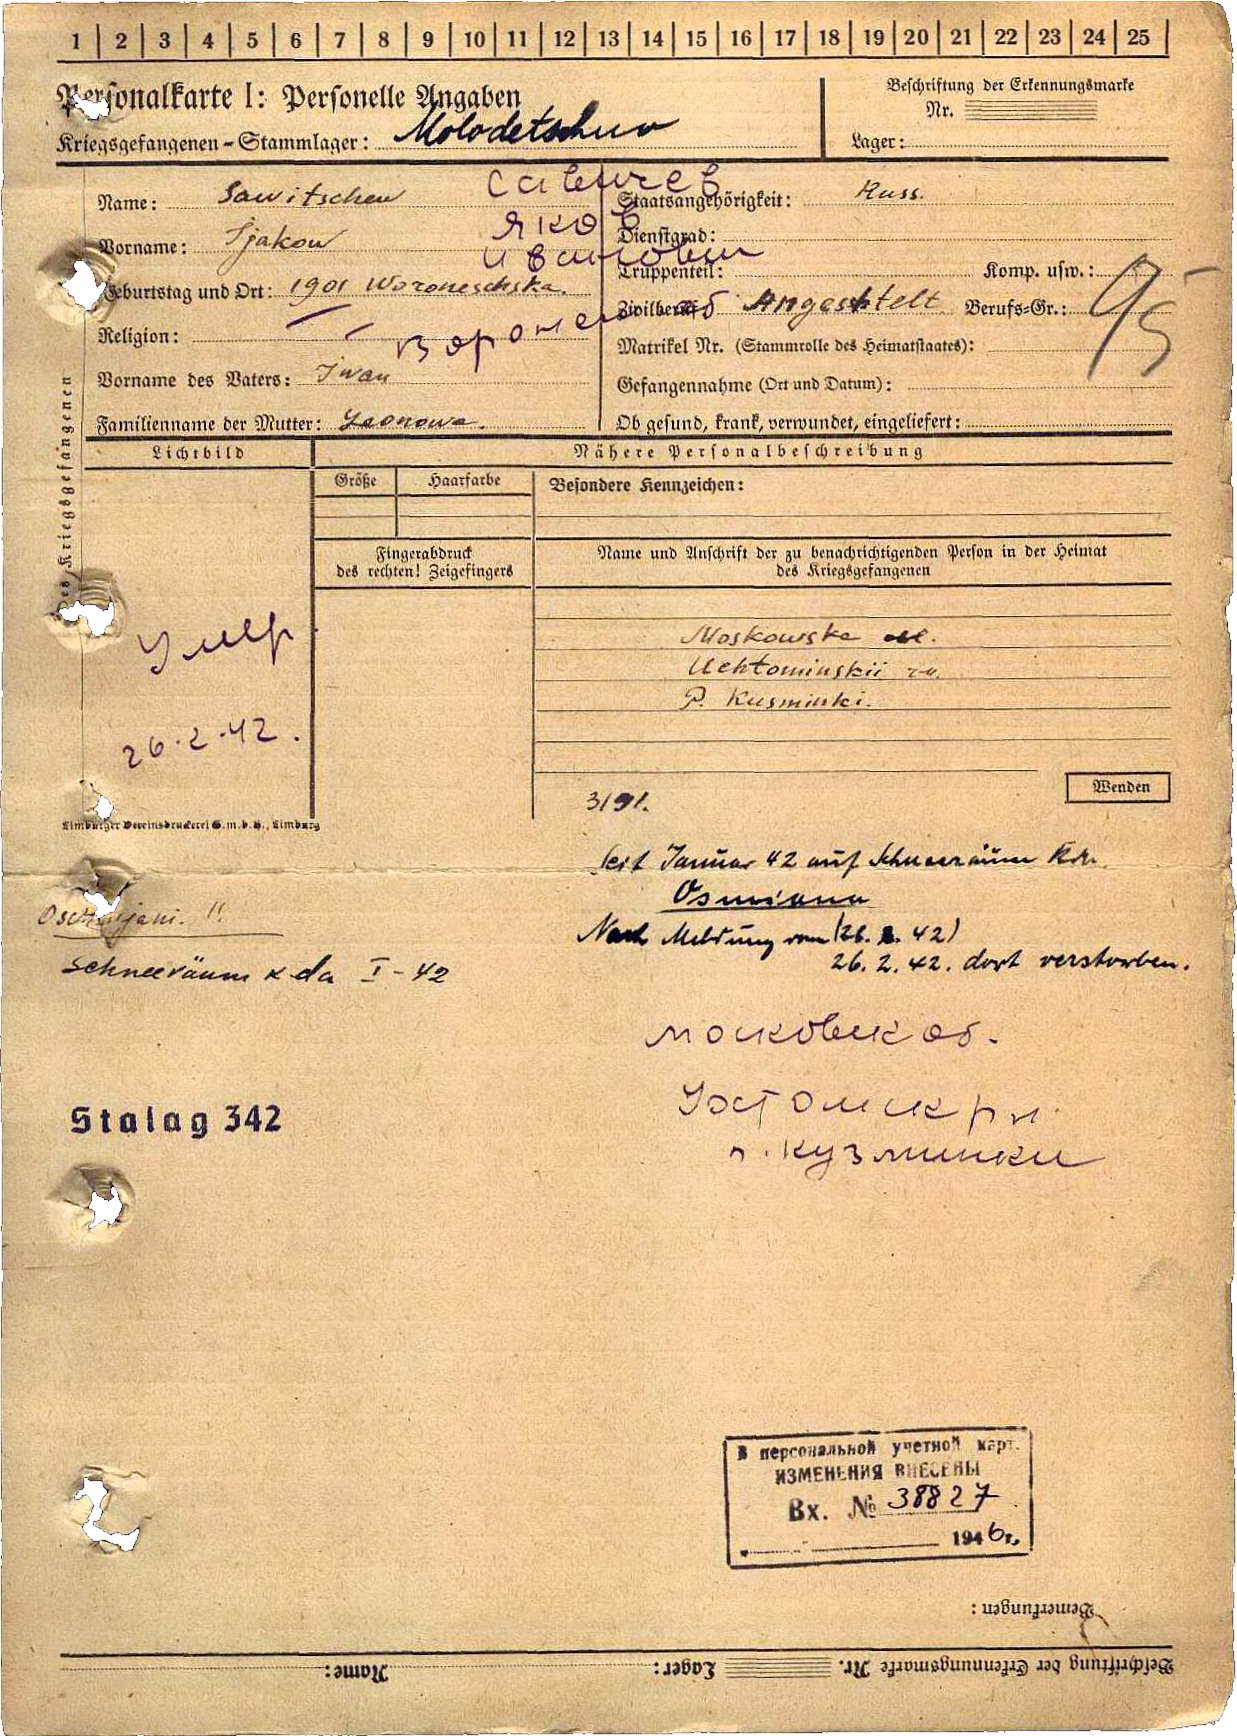 1 2 3 4 5 6 7 8 9 10 11 12 13 14 15 16 17 18 19 20 21 22 23 24 25
Personalkarte I: Personelle Angaben
Kriegsgefangenen-Stammlager: Molodetschno
Beschriftung der Erkennungsmarke
Nr.
Lager:
Name: Sawitschew
Савичев
Vorname: Jjakow
Яков
Иванович
Geburtstag und Ort: 1901 Woroneschska.
Воронеж об
Religion:
Vorname des Vaters: Iwan
Familienname der Mutter: Leonowa.
Staatsangehörigkeit: Russ.
Dienstgrad:
Truppenteil: Komp. usw.:
Zivilberuf: Angestelt Berufs-Gr.: 95
Matrikel Nr. (Stammrolle des Heimatstaates):
Gefangennahme (Ort und Datum):
Ob gesund, krank, verwundet, eingeliefert:
des Kriegsgefangenen
Lichtbild
Nähere Personalbeschreibung
Größe Haarfarbe Besondere Kennzeichen:
Fingerabdruck
des rechten! Zeigefingers
Name und Anschrift der zu benachrichtigenden Person in der Heimat
des Kriegsgefangenen
Умер
26.2.42.
Moskowska
Uchtominskii
P. Kusminki.
Wenden
3191.
Limburger Vereinsdruckerei G.m.b.H., Limburg
Seit Januar 42 auf Schneeräum Kdo.
Osmiana
Nach Meldung vom (26.2.42)
26.2.42. dort verstorben.
Oschmjani. !!
Schneeräum Kdo I-42
Московск об.
Ухтомск рн
п. Кузминки
Stalag 342
В персональной учетной карт.
ИЗМЕНЕНИЯ ВНЕСЕНЫ
Вх. № 38827
1946г.
Bemerkungen:
Beschriftung der Erkennungsmarke Nr. Lager: Name: